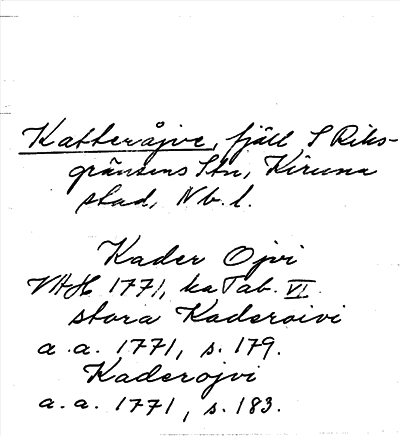 Katteråjve, fjäll S Riks-
gränsens Stn, Kiruna
stad, Nb. l.
Kader Ojvi
VAH 1771, ka Tab. VI.
stora Kaderoivi
a. a. 1771, s. 179.
Kaderojvi
a. a. 1771, s. 183.